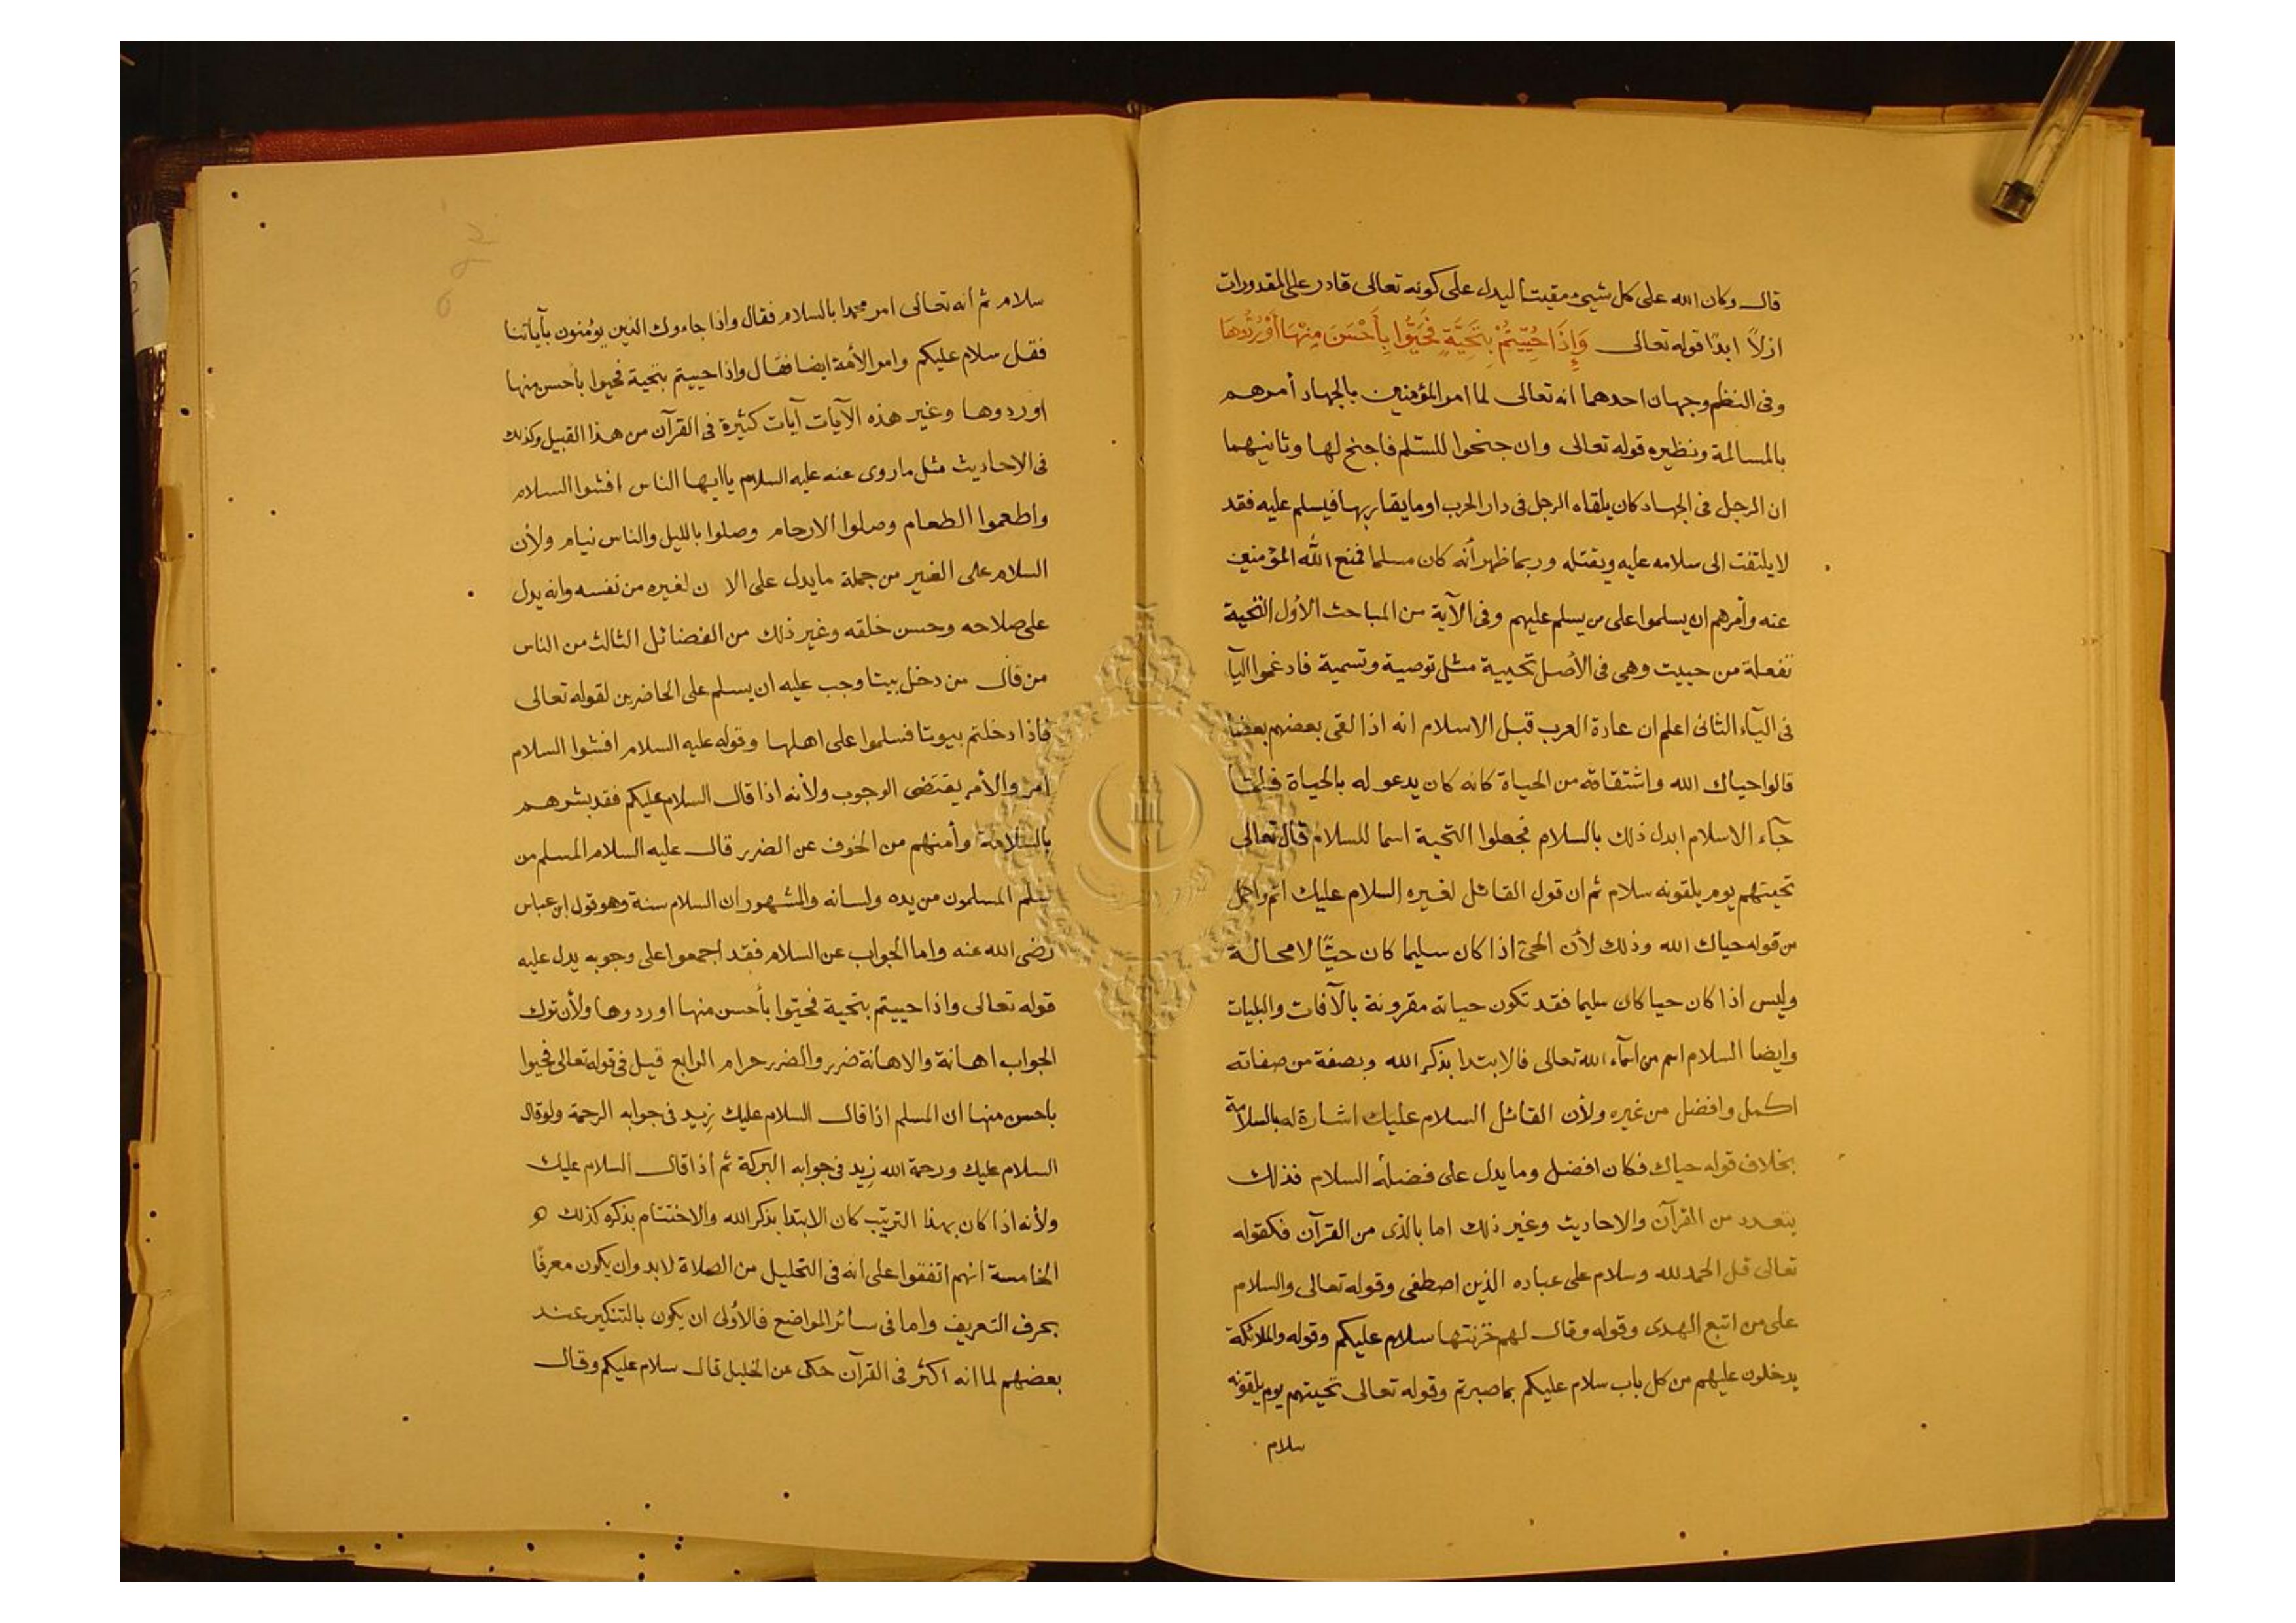 قال وكان الله على كل شيء مقيتا ليدل على كونه تعالى قادر على المقدورات
ازلاً ابدًا قوله تعالى وَإِذَا حُيِّيتُمْ بِتَحِيَّةٍ فَحَيُّوا بِأَحْسَنَ مِنْهَا أَوْ رُدُّوهَا
وفى النظم وجهان احدهما انه تعالى لما امر المؤمنين بالجهاد أمرهم
بالمسالمة ونظيره قوله تعالى وان جنحوا للسّلم فاجنح لها وثانيهما
ان الرجل فى الجهاد كان يلقاه الرجل فى دار الحرب او ما يقاربها فيسلم عليه فقد
لا يلتفت الى سلامه عليه ويقتله وربما ظهر أنه كان مسلما فمنع الله المؤمنين
عنه وأمرهم ان يسلموا على من يسلم عليهم وفى الآية من المباحث الأول التحية
تفعلة من حييت وهى فى الأصل تحيية مثل توصية وتسمية فادغموا اليآ
فى اليآء الثانى اعلم ان عادة العرب قبل الاسلام انه اذا لقى بعضهم بعضا
قالوا حياك الله واشتقاقه من الحياة كانه كان يدعو له بالحياة فلما
جآء الاسلام ابدل ذلك بالسلام فجعلوا التحية اسما للسلام قال تعالى
تحيتهم يوم يلقونه سلام ثم ان قول القائل لغيره السلام عليك اتم واكمل
من قوله حياك الله وذلك لأن الحىّ اذا كان سليما كان حيًّا لا محالة
وليس اذا كان حيا كان سليما فقد تكون حياته مقرونة بالآفات والبليات
وايضا السلام اسم من اسمآء الله تعالى فالابتدا بذكر الله وبصفة من صفاته
اكمل وافضل من غيره ولأن القائل السلام عليك اشارة له بالسلامة
بخلاف قوله حياك فكان افضل وما يدل على فضيلة السلام فذلك
يتعدد من القرآن والاحاديث وغير ذلك اما بالذى من القرآن فكقوله
تعالى قل الحمد لله وسلام على عباده الذين اصطفى وقوله تعالى والسلام
على من اتبع الهدى وقوله وقال لهم خزنتها سلام عليكم وقوله والملائكة
يدخلون عليهم من كل باب سلام عليكم بما صبرتم وقوله تعالى تحيتهم يوم يلقونه
سلام
سلام ثم انه تعالى امر محمدا بالسلام فقال واذا جاءوك الذين يؤمنون بآياتنا
فقل سلام عليكم وامر الأمة ايضا فقال واذا حييتم بتحية فحيوا بأحسن منها
او ردوها وغير هذه الآيات آيات كثيرة فى القرآن من هذا القبيل وكذلك
فى الاحاديث مثل ما روى عنه عليه السلام ياايها الناس افشوا السلام
واطعموا الطعام وصلوا الارحام وصلوا بالليل والناس نيام ولأن
السلام على الغير من جملة ما يدل على الا ن لغيره من نفسه وانه يدل
على صلاحه وحسن خلقه وغير ذلك من الفضائل الثالث من الناس
من قال من دخل بيتا وجب عليه ان يسلم على الحاضرين لقوله تعالى
فاذا دخلتم بيوتا فسلموا على اهلها وقوله عليه السلام افشوا السلام
امر والأمر يقتضى الوجوب ولأنه اذا قال السلام عليكم فقد بشرهم
بالسلامة وأمنهم من الخوف عن الضرر قال عليه السلام المسلم من
سلم المسلمون من يده ولسانه والمشهور ان السلام سنة وهو قول ابن عباس
رضى الله عنه واما الجواب عن السلام فقد اجمعوا على وجوبه يدل عليه
قوله تعالى واذا حييتم بتحية فحيّوا بأحسن منها او ردوها ولأن ترك
الجواب اهانة والاهانة ضرر والضرر حرام الرابع قيل فى قوله تعالى فحيوا
باحسن منها ان المسلم اذا قال السلام عليك زيد فى جوابه الرحمة ولو قال
السلام عليك ورحمة الله زيد فى جوابه البركة ثم اذا قال السلام عليك
ولأنه اذا كان بهذا الترتيب كان الابتدا بذكر الله والاختتام بذكره كذلك
الخامسة انهم اتفقوا على انه فى التحليل من الصلاة لا بد وان يكون معرفًا
بحرف التعريف واما فى سائر المواضع فالأولى ان يكون بالتنكير عند
بعضهم لما انه اكثر فى القرآن حكى عن الخليل قال سلام عليكم وقال